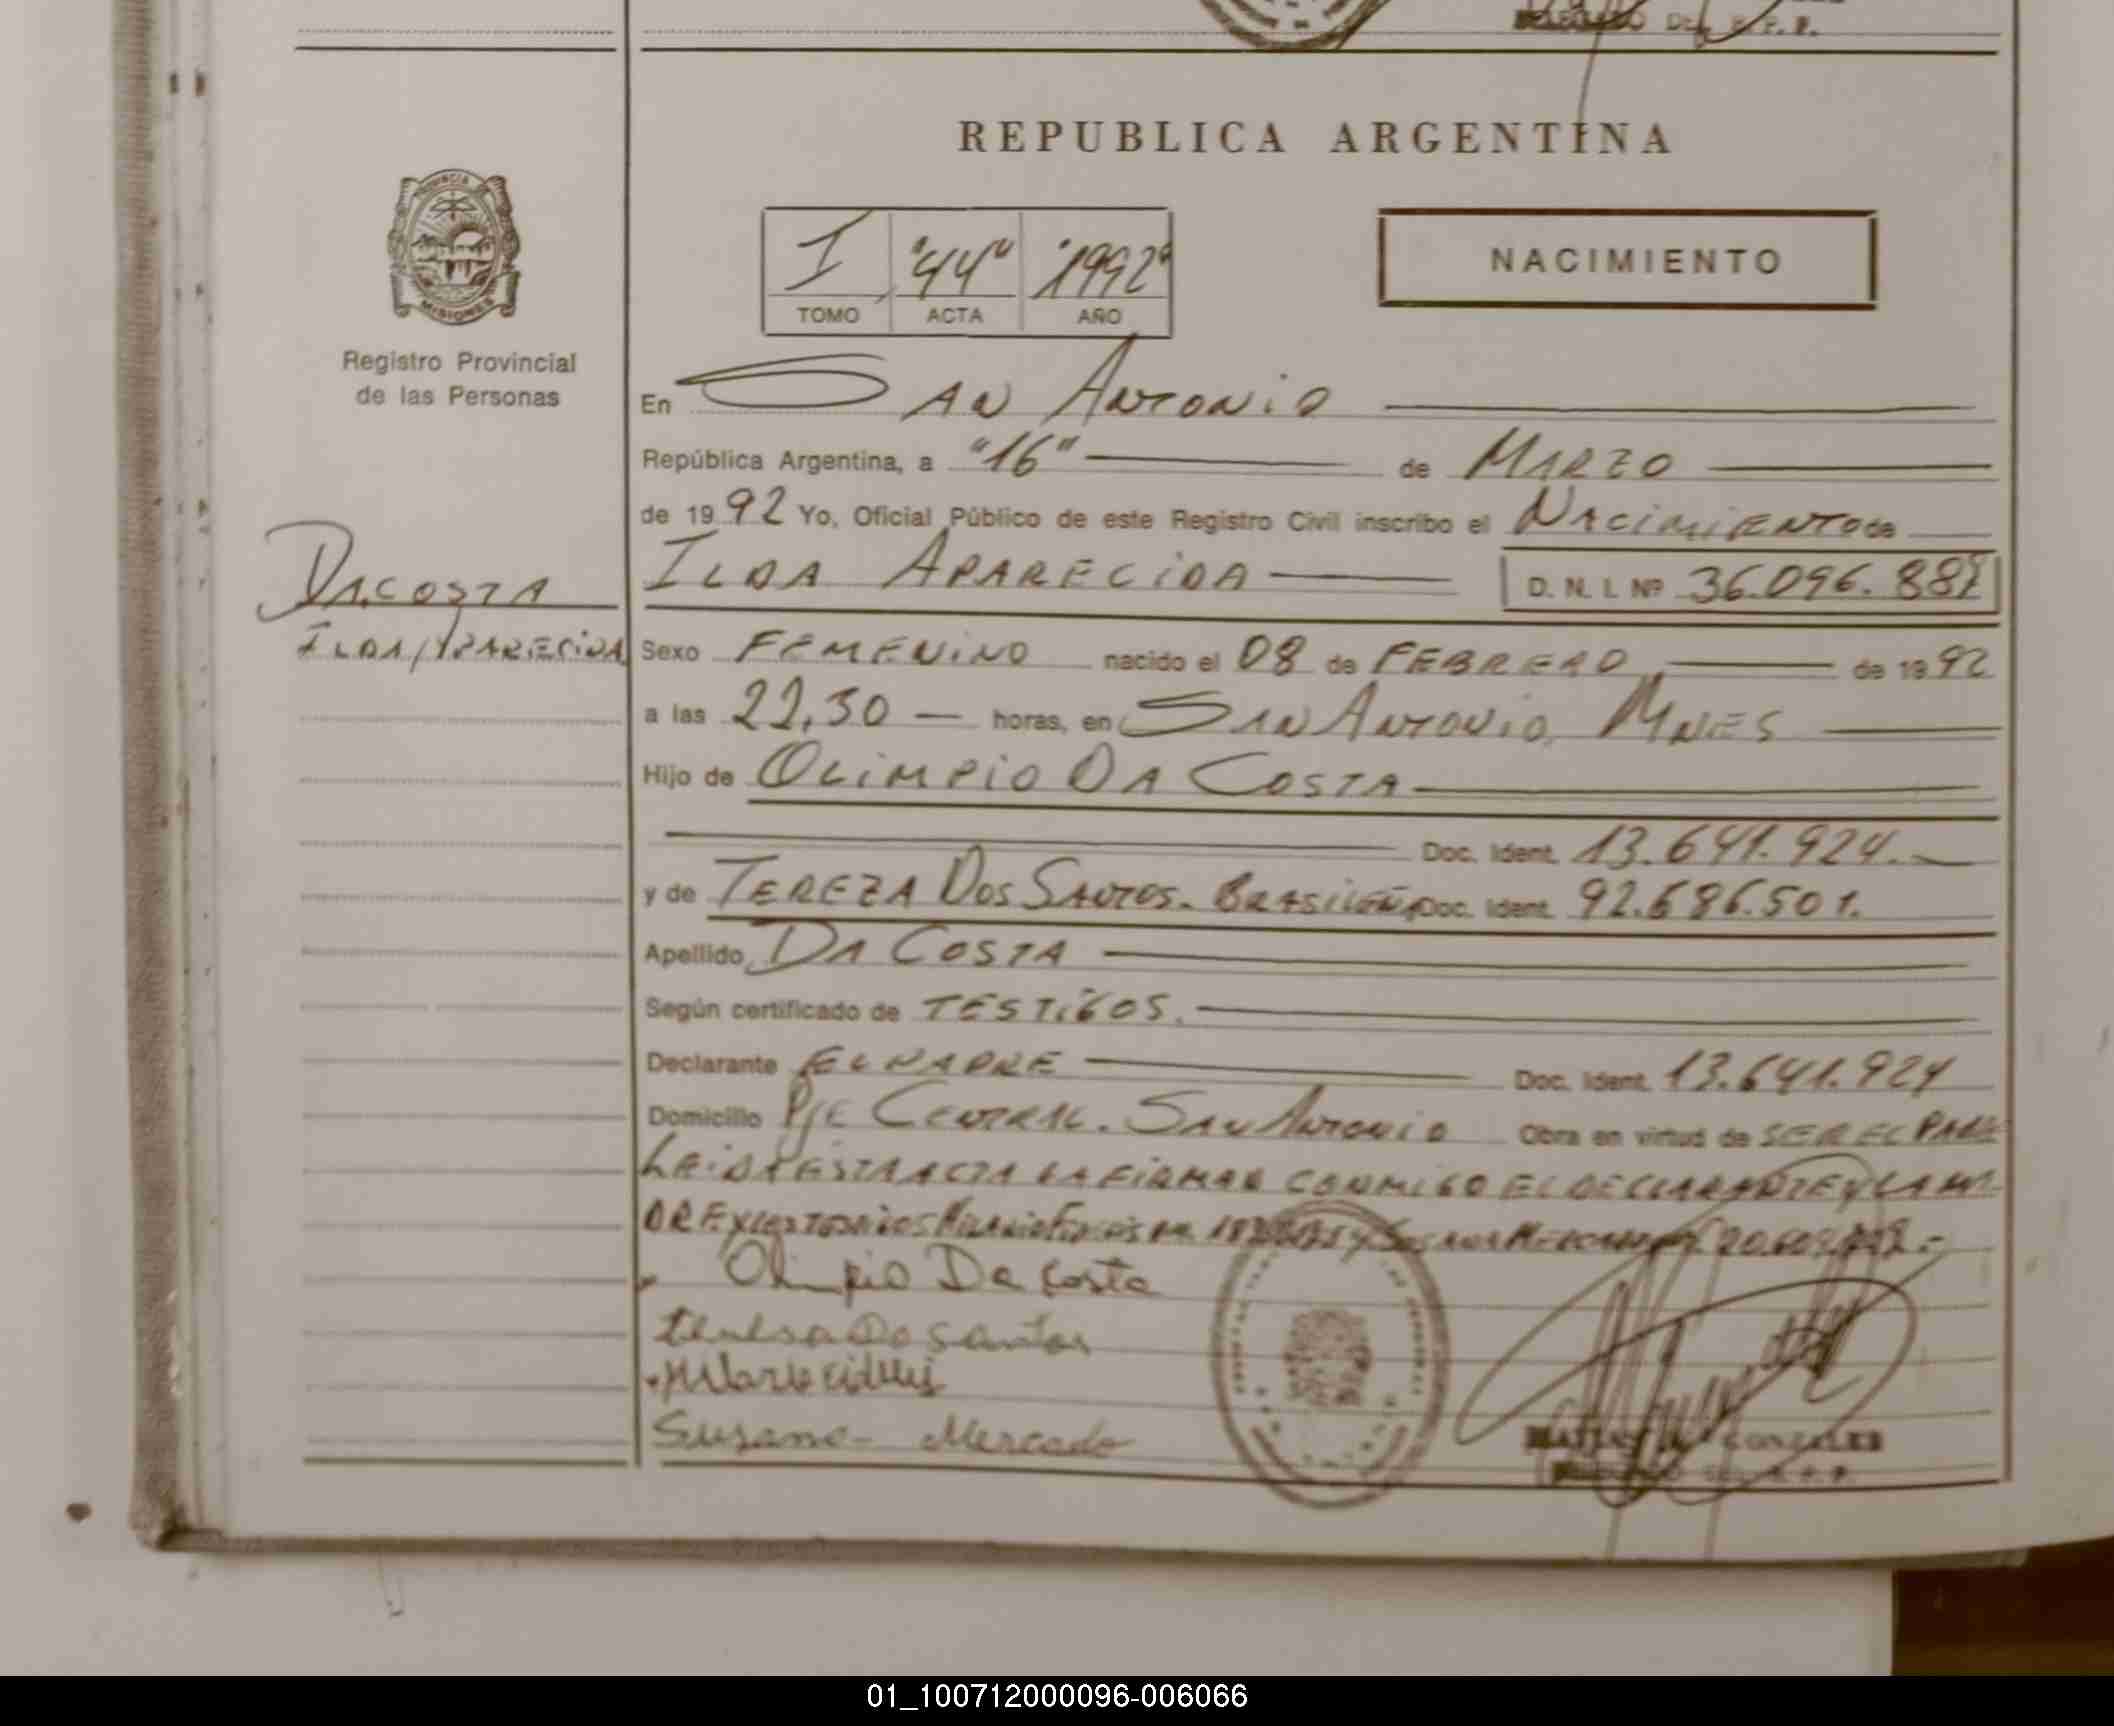 DELEGADO DEL R. P. P.
REPUBLICA ARGENTINA
PROVINCIA DE
MISIONES
Registro Provincial
de las Personas
I "44" "1992"
TOMO ACTA AÑO
NACIMIENTO
En SAN ANTONIO
República Argentina, a "16" de MARZO
de 1992 Yo, Oficial Público de este Registro Civil inscribo el NACIMIENTO de
DA COSTA
ILDA APARECIDA D. N. I. Nº 36.096.887
ILDA APARECIDA
Sexo FEMENINO nacido el 08 de FEBRERO de 1992
a las 22,30 horas, en SAN ANTONIO, MNES
Hijo de OLIMPIO DA COSTA
Doc. Ident. 13.641.924.
y de TEREZA DOS SANTOS. BRASILEÑA Doc. Ident. 92.686.501.
Apellido DA COSTA
Según certificado de TESTIGOS.
Declarante EL PADRE Doc. Ident. 13.641.924
Domicilio PJE CENTRAL. SAN ANTONIO Obra en virtud de SER EL PADRE
LEIDA ESTA ACTA LA FIRMAN CONMIGO EL DECLARANTE Y LA MA
DRE Y LOS TESTIGOS
Olimpio Da Costa
Susana Mercado
GONZALEZ
01_100712000096-006066